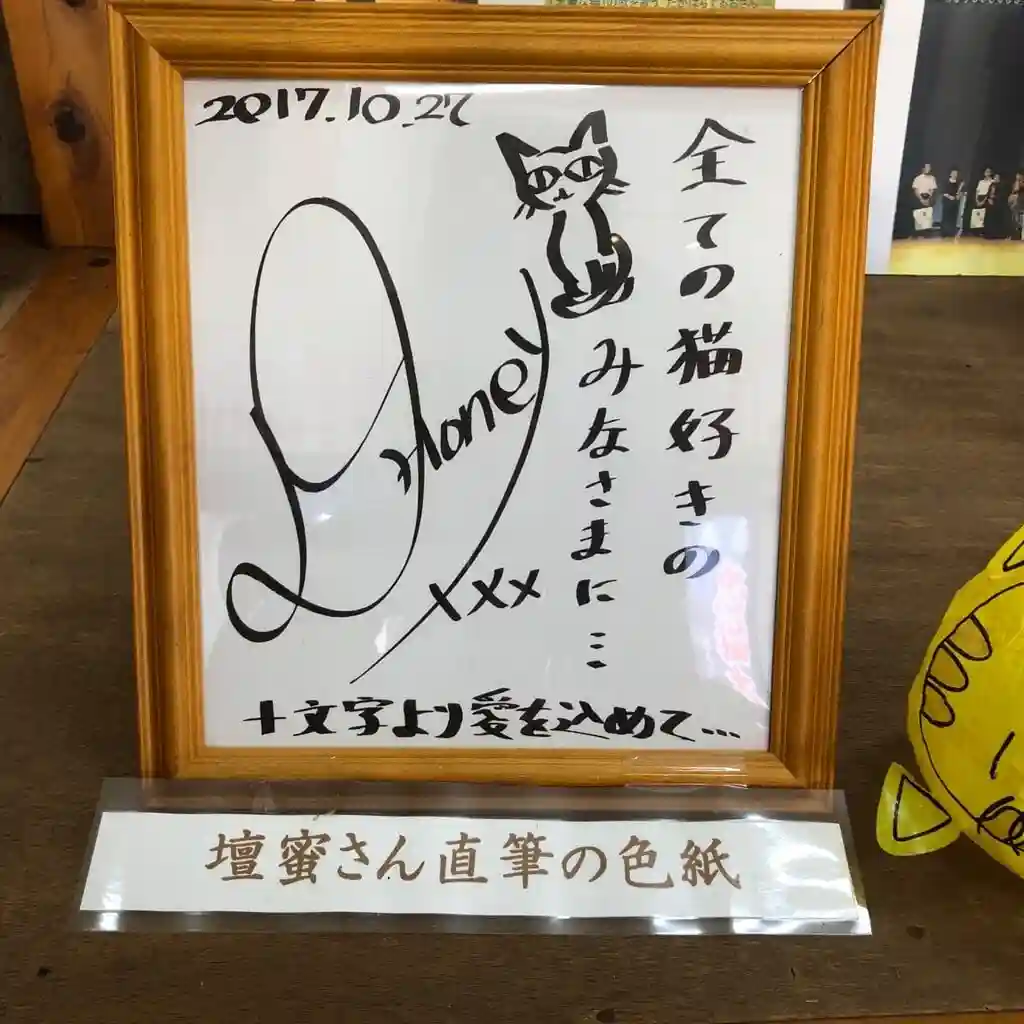 2017.10.27
全ての猫好きの
みなさまに…
Honey
xxx
十文字より愛を込めて…
壇蜜さん直筆の色紙